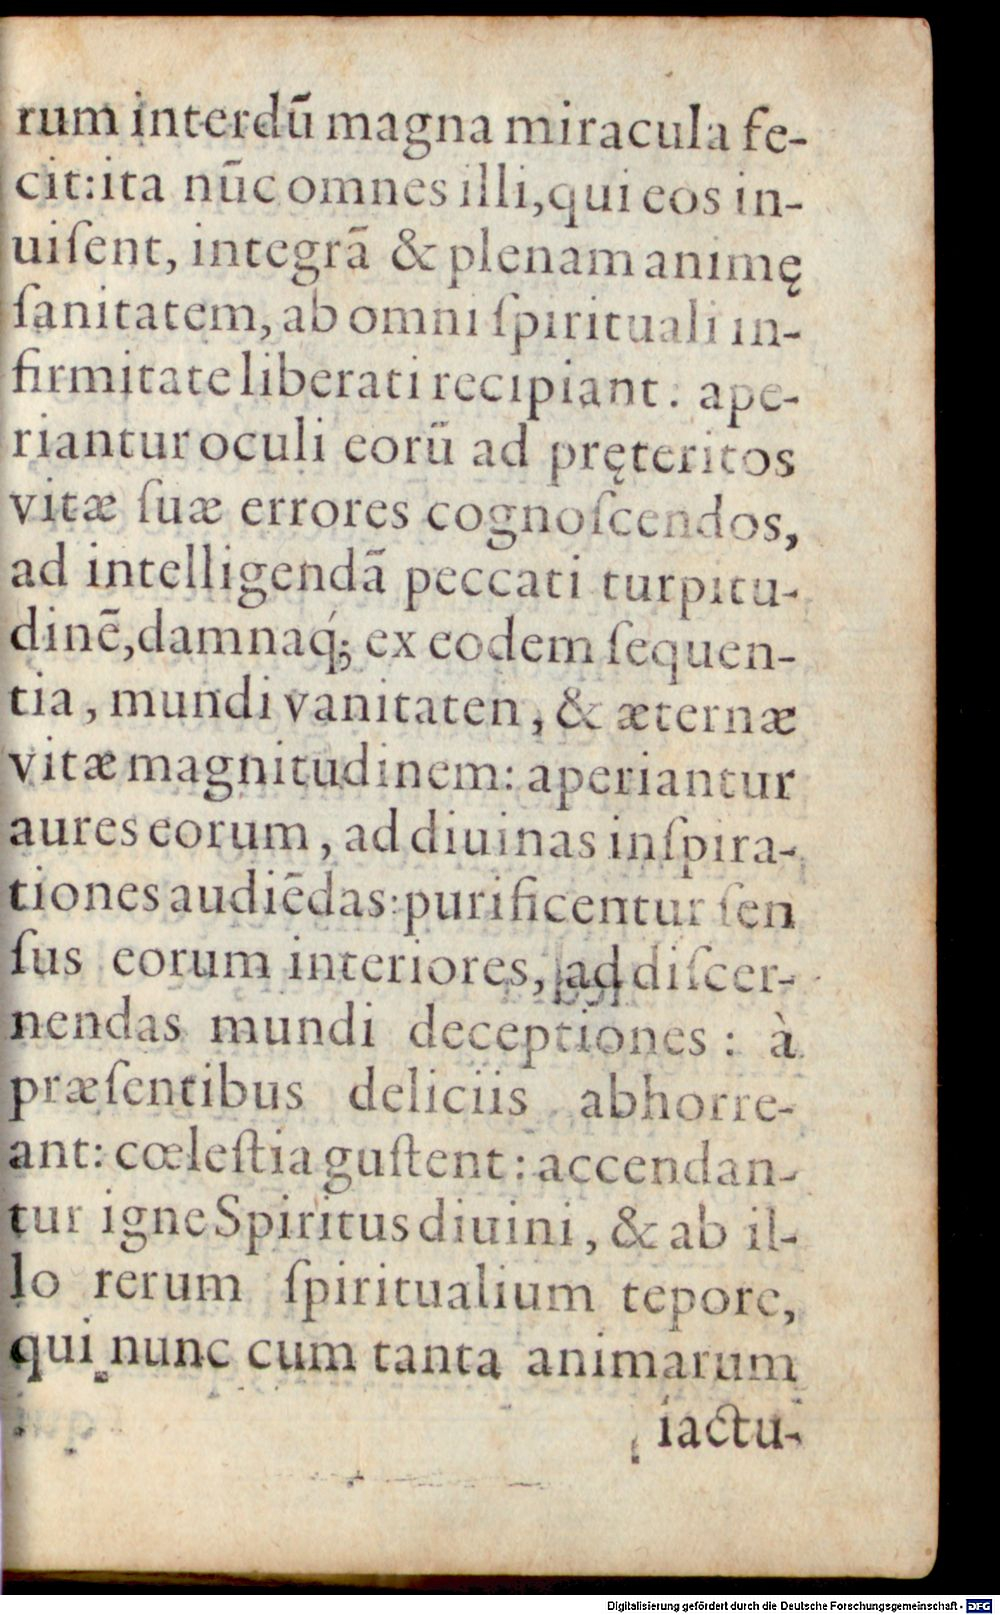 rum interdū magna miracula fe-
cit:ita nūc omnes illi,qui eos in-
uiſent, integrā & plenam animę
ſanitatem, ab omni ſpirituali in-
firmitate liberati recipiant: ape-
riantur oculi eorū ad pręteritos
vitæ ſuæ errores cognoſcendos,
ad intelligendā peccati turpitu-
dinē,damnaq́; ex eodem ſequen-
tia, mundi vanitaten, & æternæ
vitæ magnitudinem: aperiantur
aures eorum, ad diuinas inſpira-
tiones audiēdas:purificentur ſen
ſus eorum interiores, ad diſcer-
nendas mundi deceptiones: à
præſentibus deliciis abhorre-
ant: cœleſtia guſtent: accendan-
tur igne Spiritus diuini, & ab il-
lo rerum ſpiritualium tepore,
qui nunc cum tanta animarum
iactu-
Digitalisierung gefördert durch die Deutsche Forschungsgemeinschaft - DFG